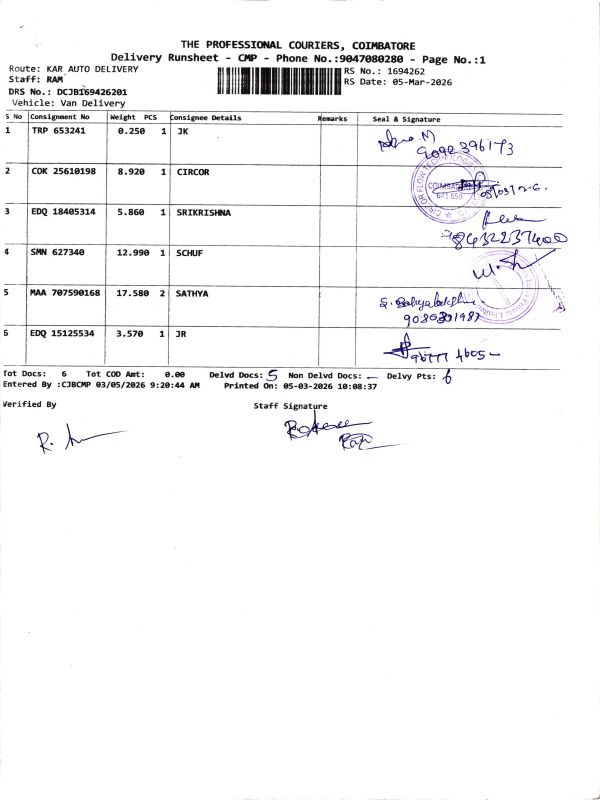 THE PROFESSIONAL COURIERS, COIMBATORE
Delivery Runsheet - CMP - Phone No.:9047080280 - Page No.:1
Route: KAR AUTO DELIVERY
RS No.: 1694262
Staff: RAM
RS Date: 05-Mar-2026
DRS No.: DCJB169426201
Vehicle: Van Delivery
S No Consignment No Weight PCS Consignee Details Remarks Seal & Signature
1 TRP 653241 0.250 1 JK
9092396173
2 COK 25610198 8.920 1 CIRCOR
CIRCOR FLOW TECHNOLOGIES
COIMBATORE
641 659
3 EDQ 18405314 5.860 1 SRIKRISHNA
8432237400
4 SMN 627340 12.990 1 SCHUF
5 MAA 707590168 17.580 2 SATHYA
9080301987
6 EDQ 15125534 3.570 1 JR
96777 4605
Tot Docs: 6 Tot COD Amt: 0.00 Delvd Docs: 5 Non Delvd Docs: — Delvy Pts: 6
Entered By :CJBCMP 03/05/2026 9:20:44 AM Printed On: 05-03-2026 10:08:37
Verified By Staff Signature